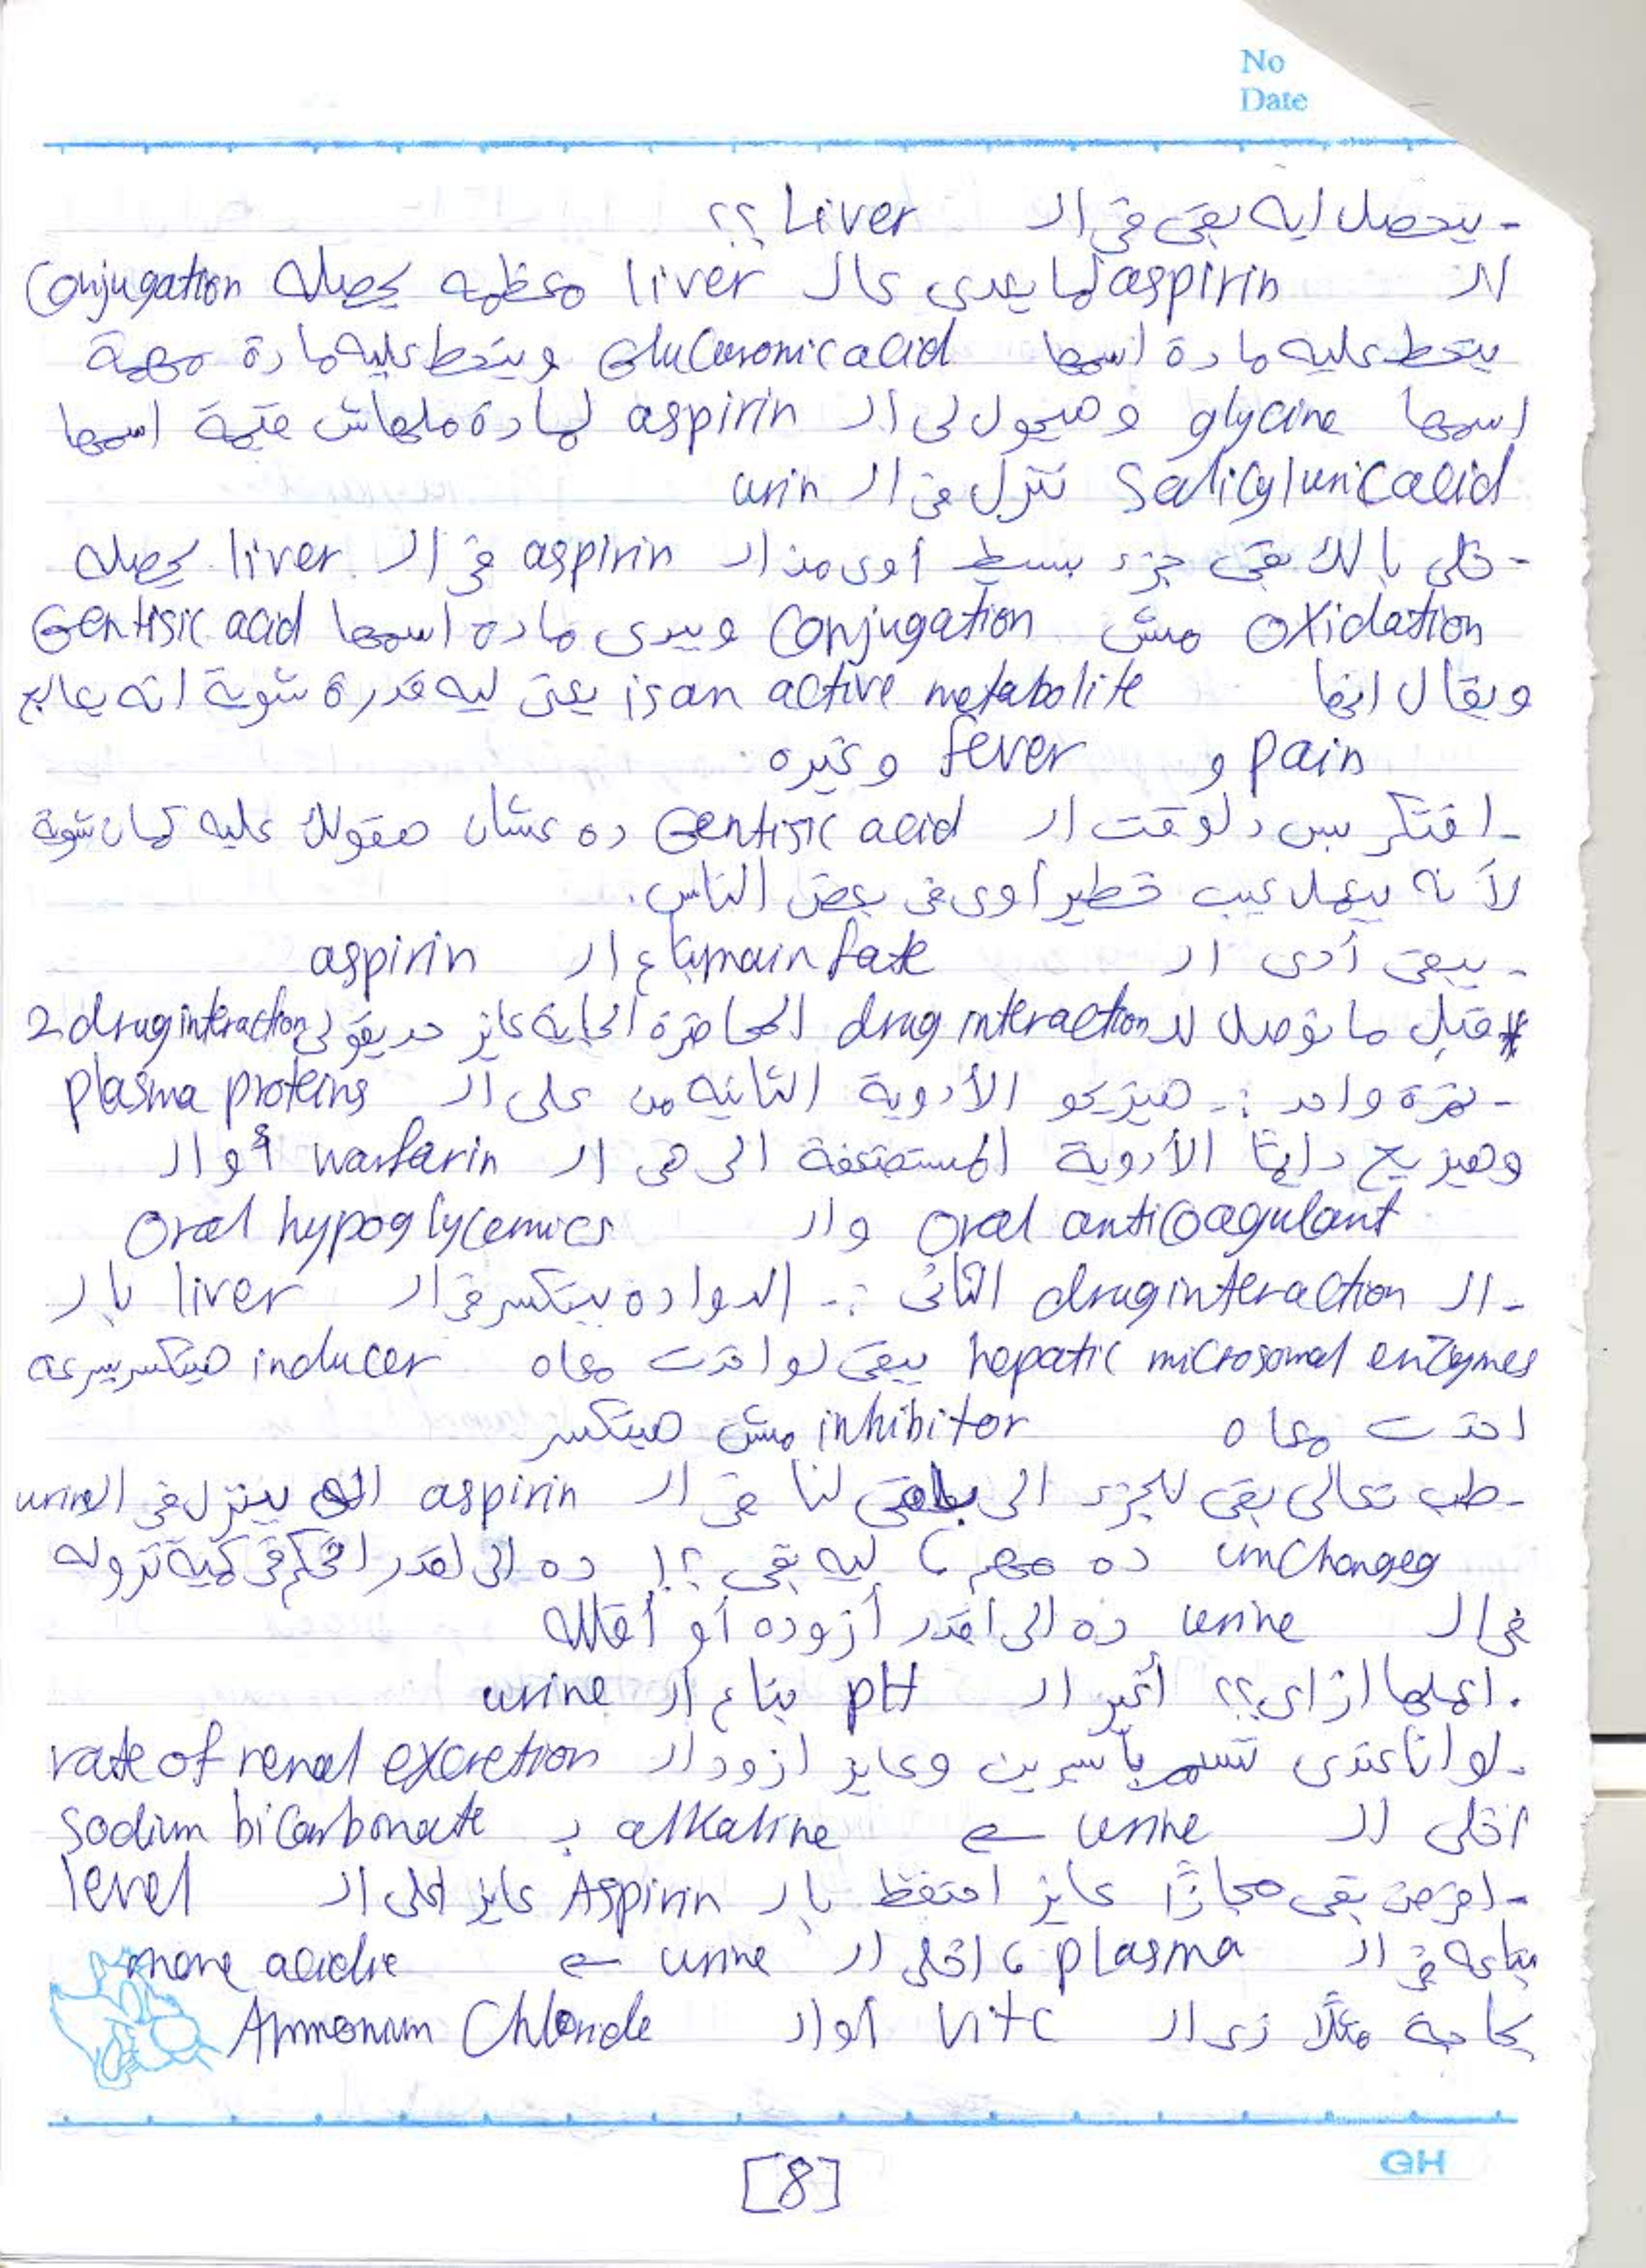 No
Date
- بيحصل ايه بقى فى ال Liver ؟؟
ال aspirin لما يعدى عال liver معظمه يحصله Conjugation
بيتحط عليه مادة اسمها Glucuronic acid وبيتحط عليه مادة مهمة
اسمها glycine وهيحول لى ال aspirin لمادة ملهاش قيمة اسمها
Salicyluric acid تنزل فى ال urin
- خلى بالك بقى جزء بسيط أوى من ال aspirin فى ال liver يحصله
oxidation مش Conjugation ويدى مادة اسمها Gentisic acid
ويقال انها is an active metabolite يعنى ليه قدرة شوية انه يعالج
pain و fever وغيره
- افتكر بس دلوقت ال Gentisic acid ده عشان هقولك عليه كمان شوية
لأنه بيعمل عيب خطير أوى فى بعض الناس.
- يبقى أدى ال main fate بتاع ال aspirin
# قبل ما نوصل لل drug interaction المحاضرة الجاية عايز حد يقولى 2 drug interaction
- نمرة واحد :- هيزيحو الأدوية التانيه من على ال plasma proteins
وهيزيح دايمًا الأدوية المستضعفة الى هى ال warfarin أوال
oral anticoagulant وال oral hypoglycemics
- ال drug interaction التانى :- الدوا ده بيتكسر فى ال liver بال
hepatic microsomal enzymes يبقى لو اخدت معاه inducer هيتكسر بسرعة
اخدت معاه inhibitor مش هيتكسر
- طب تعالى بقى للجزء الى باقى لنا فى ال aspirin الى بينزل فى ال urine
unchangeg ده مهم، ليه بقى ؟! ده الى اقدر اتحكم فى كمية نزوله
فى ال urine ده الى أقدر أزوده أو أقلله
. اعملها ازاى؟؟ أغير ال pH بتاع ال urine
- لو انا عندى تسمم بأسبرين وعايز ازود ال rate of renal excretion
اخلى ال urine ← alkaline ب sodium bicarbonate
- افرض بقى مجازًا عايز احتفظ بال Aspirin عايز اعلى ال level
بتاعه فى ال plasma، اخلى ال urine ← more acidic
بحاجة مثلًا زى ال Vit C أوال Ammonum Chloride
GH
[8]